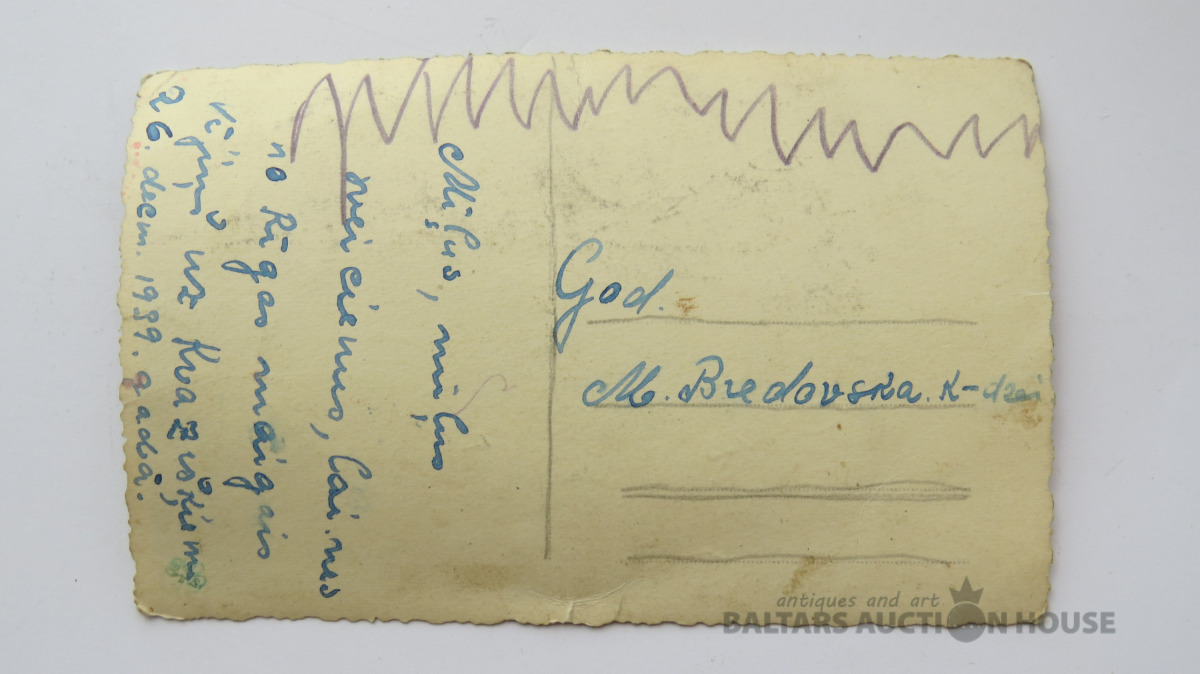 Mīļus, mīļus
sveicienus, lai nes
no Rīgas maigais
vējiņš uz Kvazišķiem
26. decm. 1939. gadā.
God.
M. Bredovska. k-dzei
antiques and art
BALTARS AUCTION HOUSE